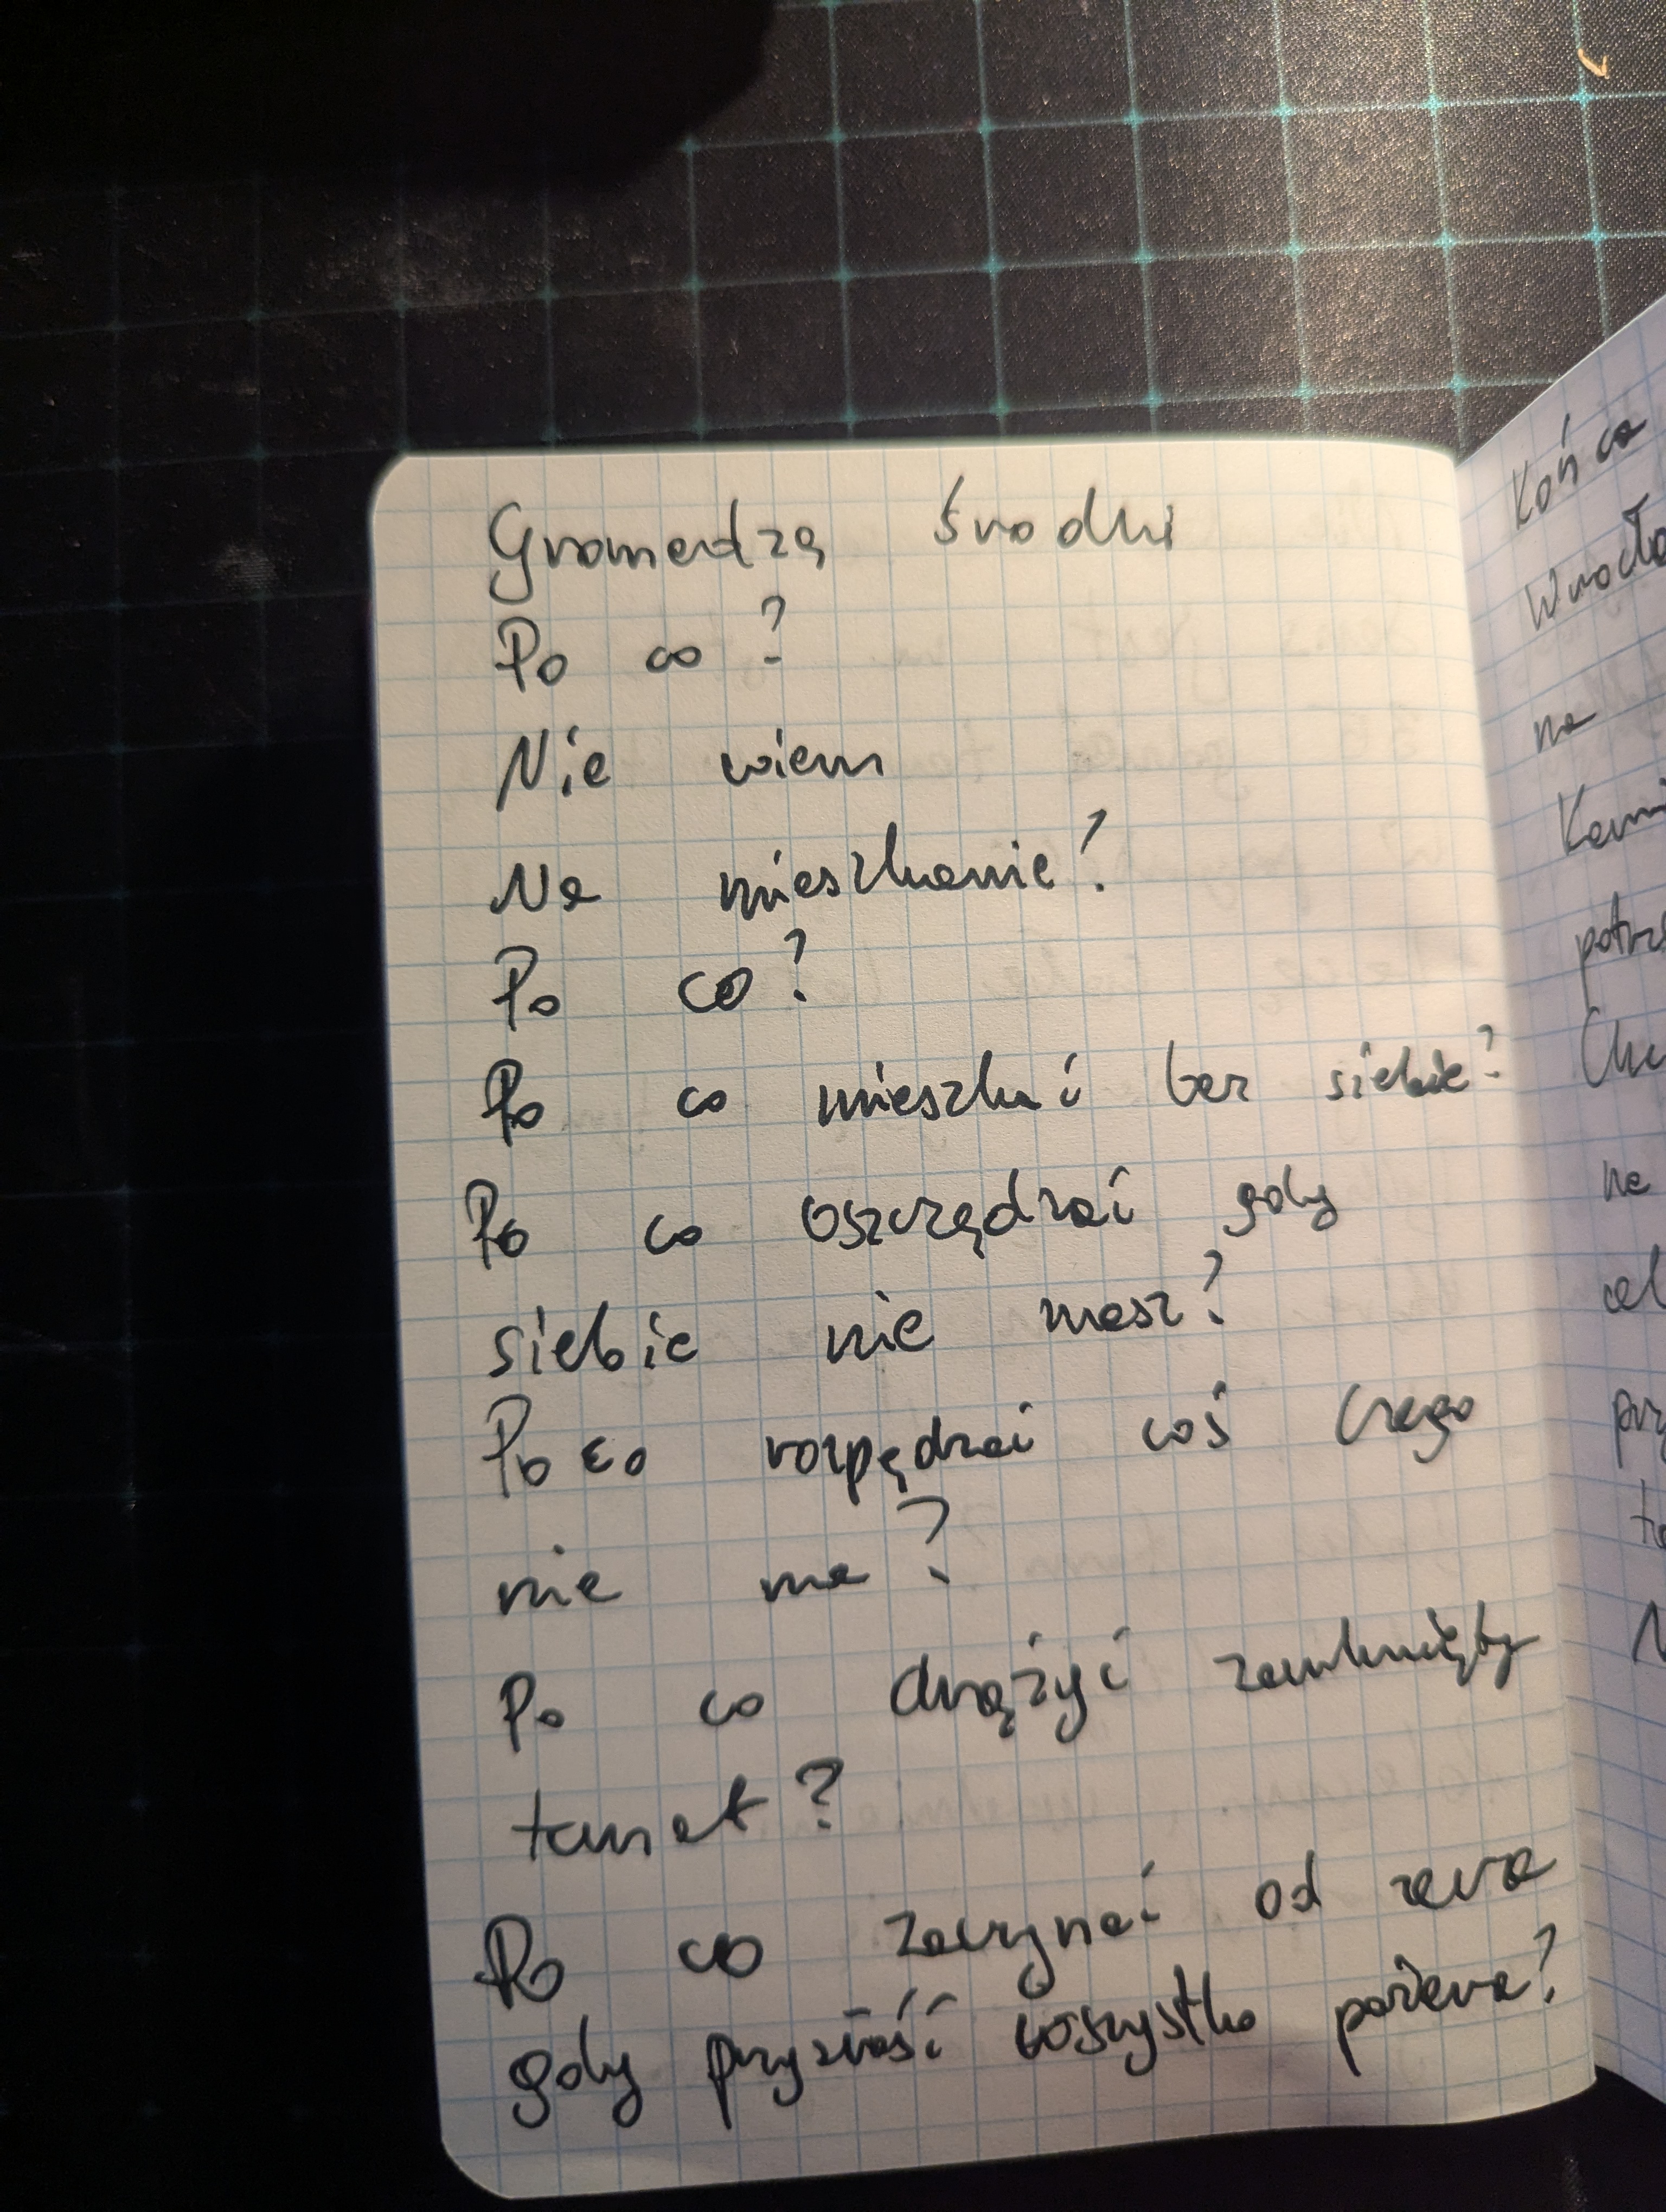 Gromadzą środki
Po co?
Nie wiem
Na mieszkanie?
Po co?
Po co mieszkać bez siebie?
Po co oszczędzać gdy
siebie nie masz?
Po co rozpędzać coś czego
nie ma?
Po co drążyć zamknięty
temat?
Po co zaczynać od zera
gdy przyszłość wszystko pożera?
Końca
na
na